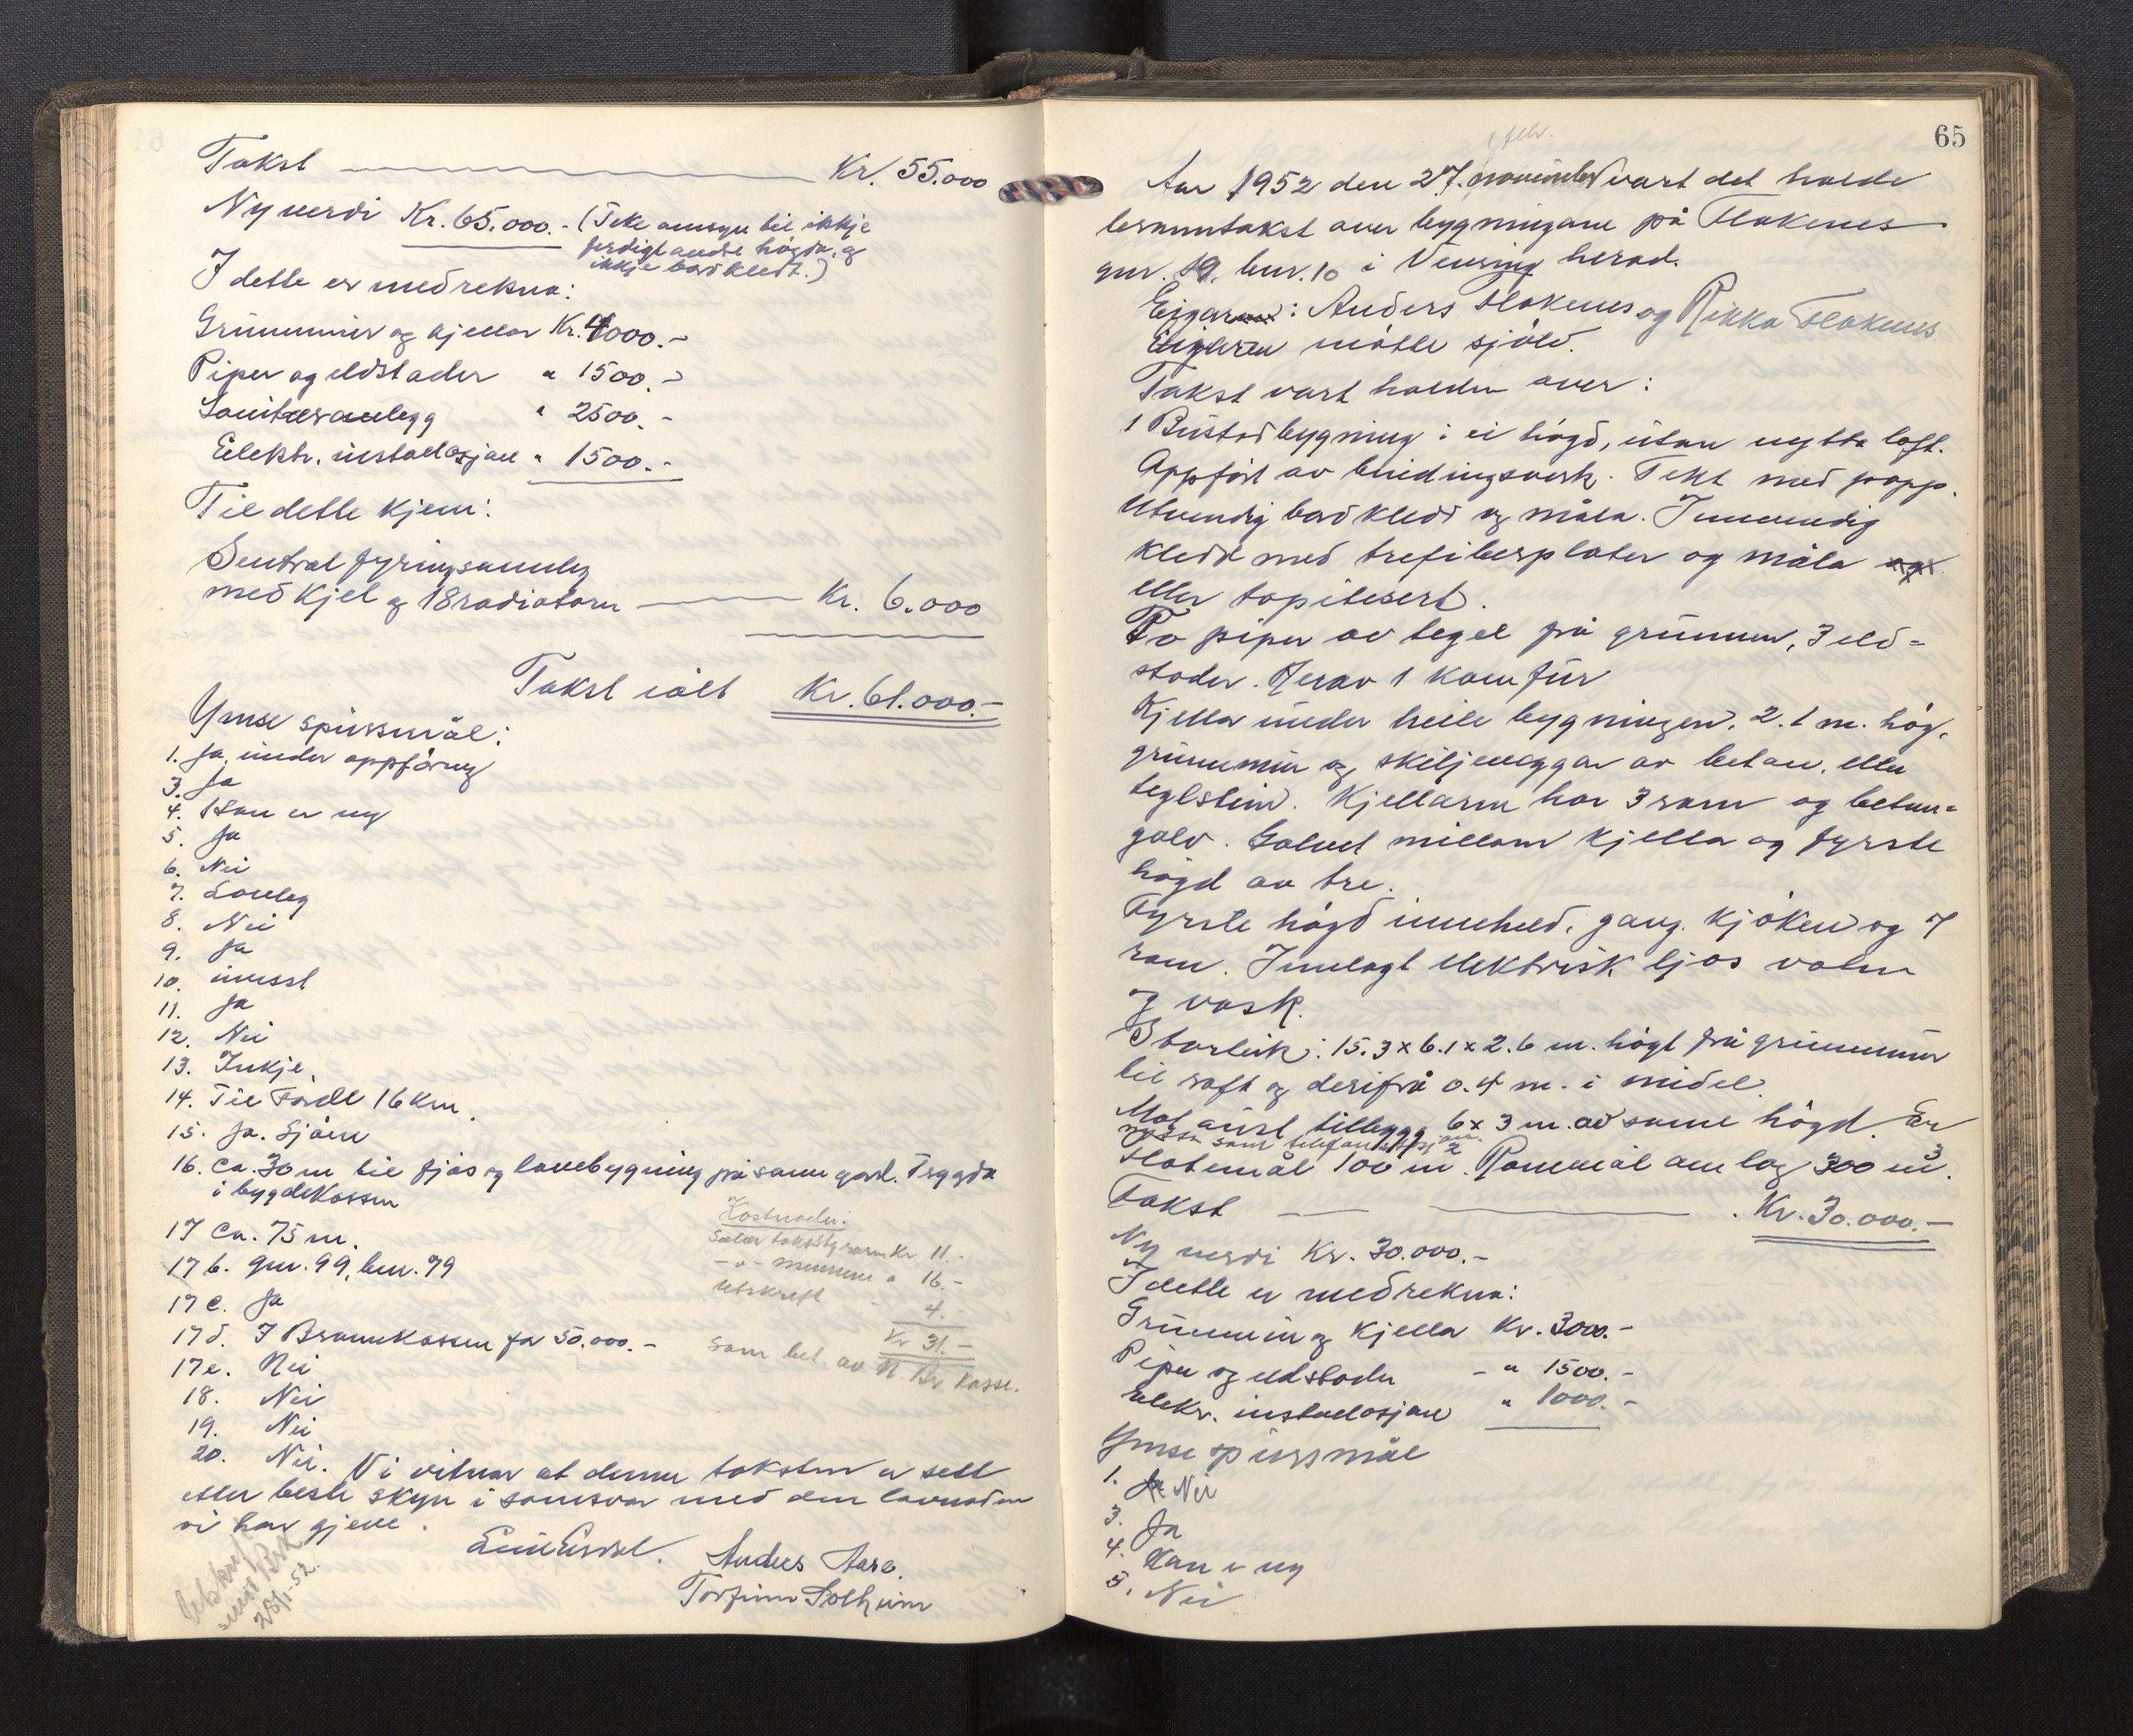 Takst Kr. 55.000
Ny verdi Kr. 65.000.- (Teke omsyn til ikkje
ferdig andre høgda og
ikkje bordkledt.)
I dette er medrekna:
Grunnmur og kjellar Kr. 4000.-
Piper og eldstader " 1500.-
Sanitæranlegg " 2500.-
Elektr. installasjon " 1500.-
Til dette kjem:
Sentralfyringsanlegg
med kjel og 18 radiatorar Kr. 6.000
Takst ialt Kr. 61.000.-
Ymse spursmål:
1. Ja, under oppføring
3. Ja
4. Han er ny
5. Ja
6. Nei
7. Loveleg
8. Nei
9. Ja
10. imest
11. Ja
12. Nei
13. Inkje.
14. Til Førde 16 km.
15. Ja. Sjøen
16. Ca. 30 m til fjøs og lauebygning på same gard. Trygda
i bygdekassen
17 Ca. 75 m.
17 b. gnr. 99, bnr. 79
17 c. Ja
17 d. I Brannkassen for 50.000.-
17 e. Nei
18. Nei
19. Nei
20. Nei. Vi vitnar at denne taksten er sett
etter beste skyn i samsvar med den lovnaden
vi har gjeve.
Kostnader:
Salær takststyraren Kr 11.-
-"- mennene " 16.-
Utskrift - 4.-
Kr 31.-
som bet. av N. Br. kasse.
Anders Aase.
Torfinn Solheim
Utskrift
sendt Brk
28/1-52.
65
1 febr.
Aar 1952 den 27. november vart det halde
branntakst over bygningane på Flokenes
gnr. 19. bnr. 10 i Vevring herad.
Eigar: Anders Flokenes og Rikka Flokenes
Eigaren møtte sjølv.
Takst vart halden over:
1 Bustadbygning i ei høgd, utan nytta loft.
Oppført av bindingsverk. Tekt med papp.
Utvendig bordkledt og måla. Innvendig
kledd med trefiberplater og måla og
eller tapitsert.
To piper av tegel på grunnen, 3 eld=
stader. Herav 1 komfur
Kjellar under heile bygningen. 2.1 m. høg.
grunnmur og skiljeveggar av betong. eller
teglstein. Kjellaren har 3 rom og betong=
golv. Golvet millom kjellar og fyrste
høgd av tre.
Fyrste høgd inneheld. gang. kjøken og 7
rom. Innlagt elektrisk ljos vatn
og vask.
Storleik: 15.3 x 6.1 x 2.6 m. høgt frå grunnmur
til raft og derifrå 0.4 m. i midel.
Mot aust tillegg 6 x 3 m. av same høgd. Er
nytta som telefonstasjon.
Flatemål 100 m². Romemål om lag 300 m³.
Takst Kr. 30.000.-
Ny verdi Kr. 30.000.-
I dette er medrekna:
Grunnmur og kjellar Kr. 3000.-
Piper og eldstader - " 1500.-
Elekr. installasjon " 1000.-
Ymse spursmål
1. Ja Nei
3. Ja
4. Han er ny
5. Nei